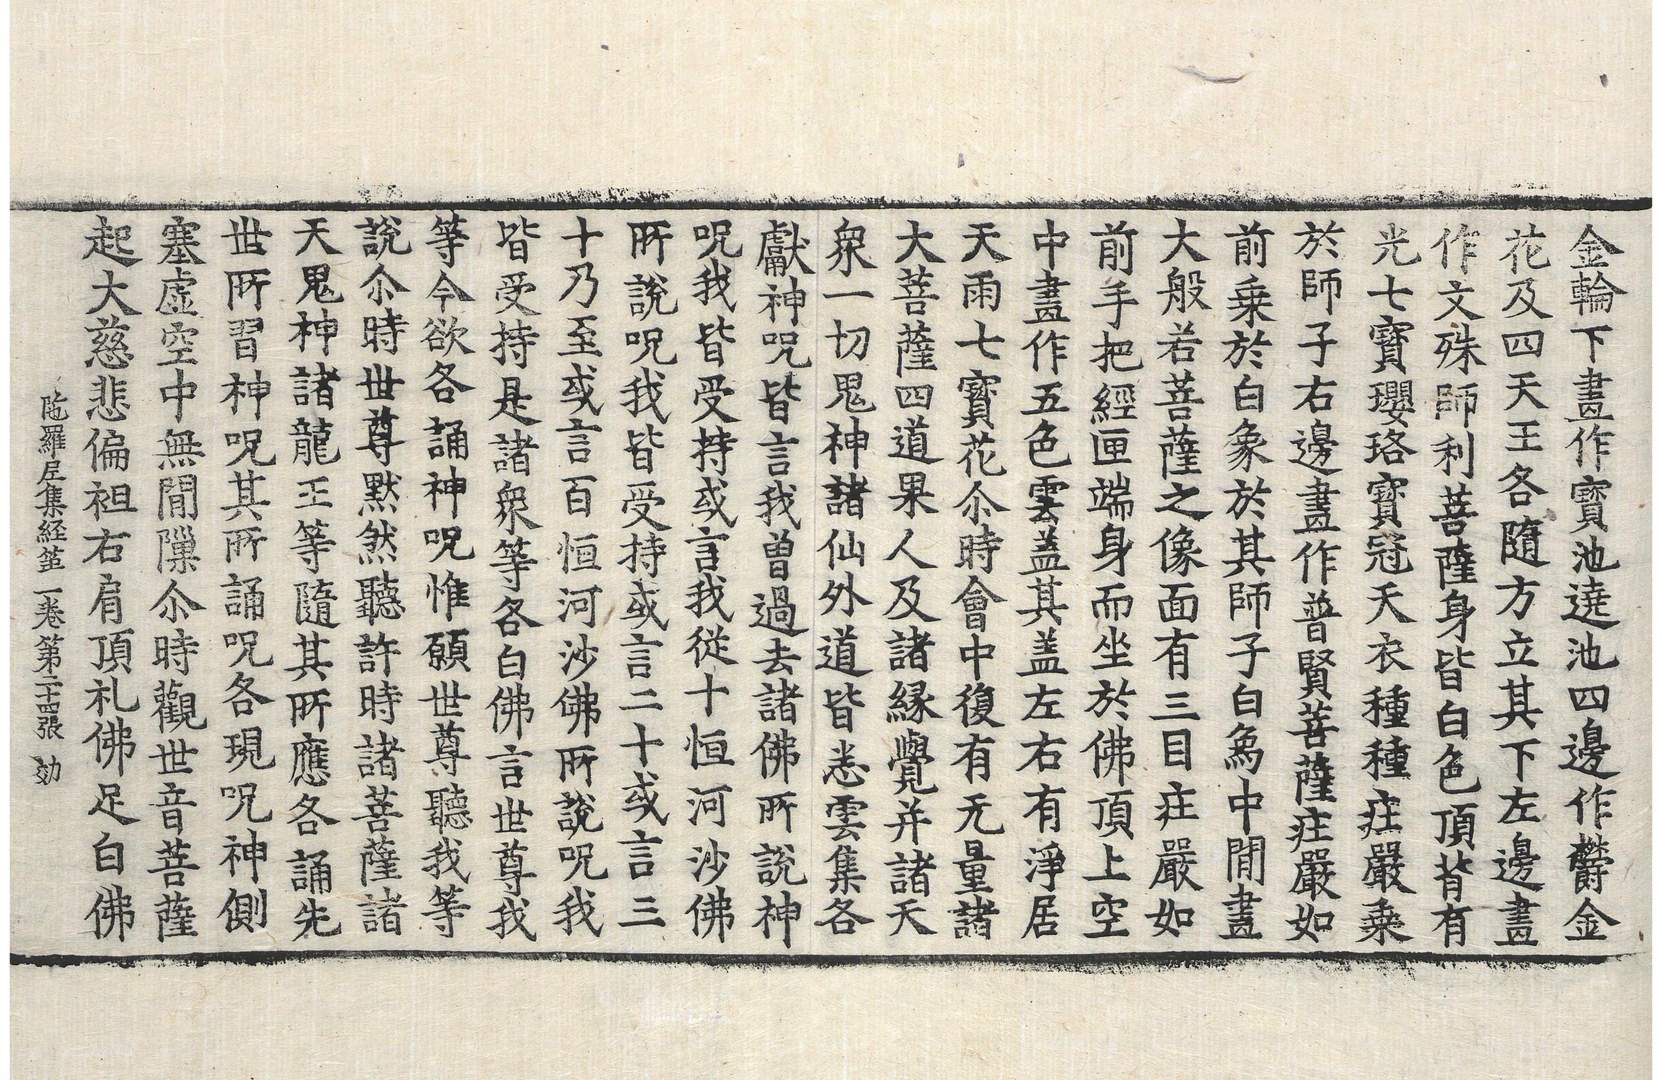 金輪下畫作寶池遶池四邊作欝金
花及四天王各隨方立其下左邊畫
作文殊師利菩薩身皆白色頂背有
光七寶瓔珞寶冠天衣種種庄嚴乗
於師子右邊畫作普賢菩薩庄嚴如
前乗於白象於其師子白為中間畫
大般若菩薩之像面有三目庄嚴如
前手把經匣端身而坐於佛頂上空
中畫作五色雲盖其盖左右有淨居
天雨七寶花尒時會中復有无量諸
大菩薩四道果人及諸縁覺并諸天
衆一切鬼神諸仙外道皆悉雲集各
獻神呪皆言我曽過去諸佛所說神
呪我皆受持或言我從十恒河沙佛
所說呪我皆受持或言二十或言三
十乃至或言百恒河沙佛所說呪我
皆受持是諸衆等各白佛言世尊我
等今欲各誦神呪惟願世尊聽我等
說尒時世尊默然聽許時諸菩薩諸
天鬼神諸龍王等隨其所應各誦先
世所習神呪其所誦呪各現呪神側
塞虛空中無間隟尒時觀世音菩薩
起大慈悲偏袒右肩頂礼佛足白佛
陁羅尼集経第一卷第二十四張 効